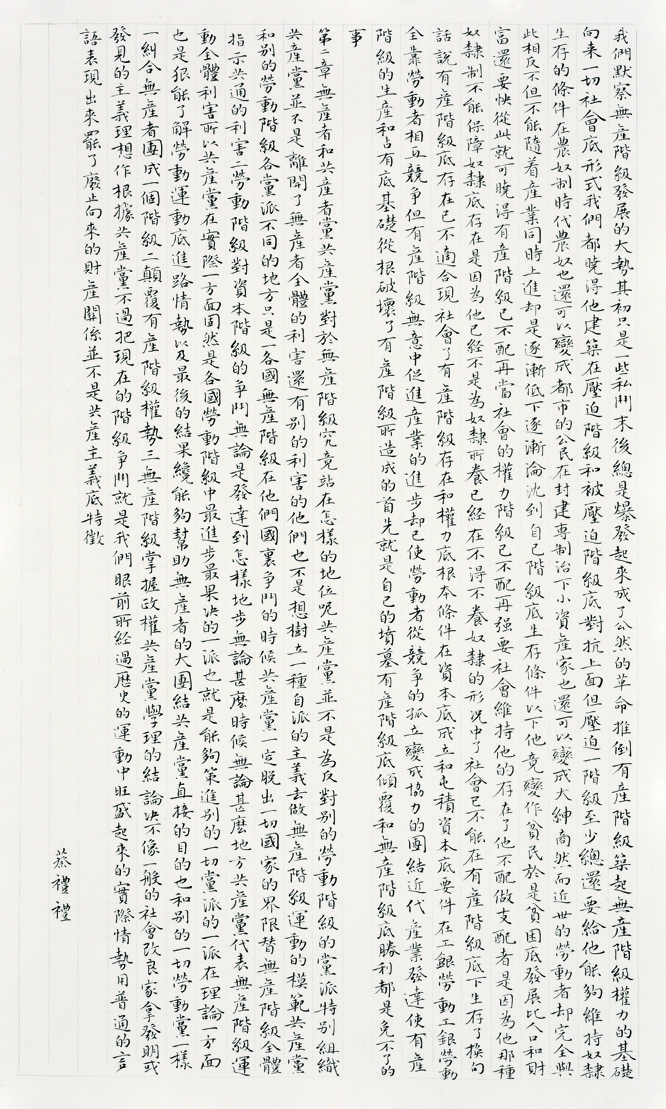 我們默察無產階級發展的大勢其初只是一些私鬥末後總是爆發起來成了公然的革命推倒有產階級築起無產階級權力的基礎
向来一切社會底形式我們都曉得他建築在壓迫階級和被壓迫階級底對抗上面但壓迫一階級至少總還要給他能夠維持奴隸
生存的條件在農奴制時代農奴也還可以變成都市的公民在封建專制治下小資產家也還可以變成大紳商然而近世的勞動者却完全與
此相反不但不能隨着產業同時上進却是逐漸低下逐漸淪沈到自己階級底生存條件以下他竟變作貧民於是貧困底發展比人口和財
富還要快從此就可曉得有產階級已不配再當社會的權力階級已不配再强要社會維持他的存在了他不配做支配者是因為他那種
奴隸制不能保障奴隸底存在是因為他已經不是為奴隸所養已經在不得不養奴隸的形況中了社會已不能在有產階級底下生存了換句
話說有產階級底存在已不適合現社會了有產階級存在和權力底根本條件在資本底成立和屯積資本底要件在工銀勞動工銀勞動
全靠勞動者相互競爭但有產階級無意中促進產業的進步却已使勞動者從競爭的孤立變成協力的團結近代產業發達使有產
階級的生產和占有底基礎從根破壞了有產階級所造成的首先就是自己的墳墓有產階級底傾覆和無產階級底勝利都是免不了的
事
第二章無產者和共產者黨共產黨對於無產階級究竟站在怎樣的地位呢共產黨並不是為反對别的勞動階級的黨派特别組織
共產黨並不是離開了無產者全體的利害還有别的利害的他們也不是想樹立一種自派的主義去做無產階級運動的模範共產黨
和别的勞動階級各黨派不同的地方只是一各國無產階級在他們國裏爭鬥的時候共產黨一定脫出一切國家的界限替無產階級全體
指示共通的利害二勞動階級對資本階級的爭鬥無論是發達到怎樣地步無論甚麽時候無論甚麽地方共產黨代表無產階級運
動全體利害所以共產黨在實際一方面固然是各國勞動階級中最進步最果决的一派也就是能夠策進别的一切黨派的一派在理論一方面
也是狠能了解勞動運動底進路情勢以及最後的結果纔能夠幫助無產者的大團結共產黨直接的目的也和别的一切勞動黨一樣
一糾合無產者團成一個階級二顛覆有產階級權勢三無產階級掌握政權共產黨學理的結論决不像一般的社會改良家拿發明或
發見的主義理想作根據共產黨不過把現在的階級爭鬥就是我們眼前所經過歷史的運動中旺盛起來的實際情勢用普通的言
語表現出來罷了廢止向來的財產關係並不是共產主義底特徵
蔡禮禮